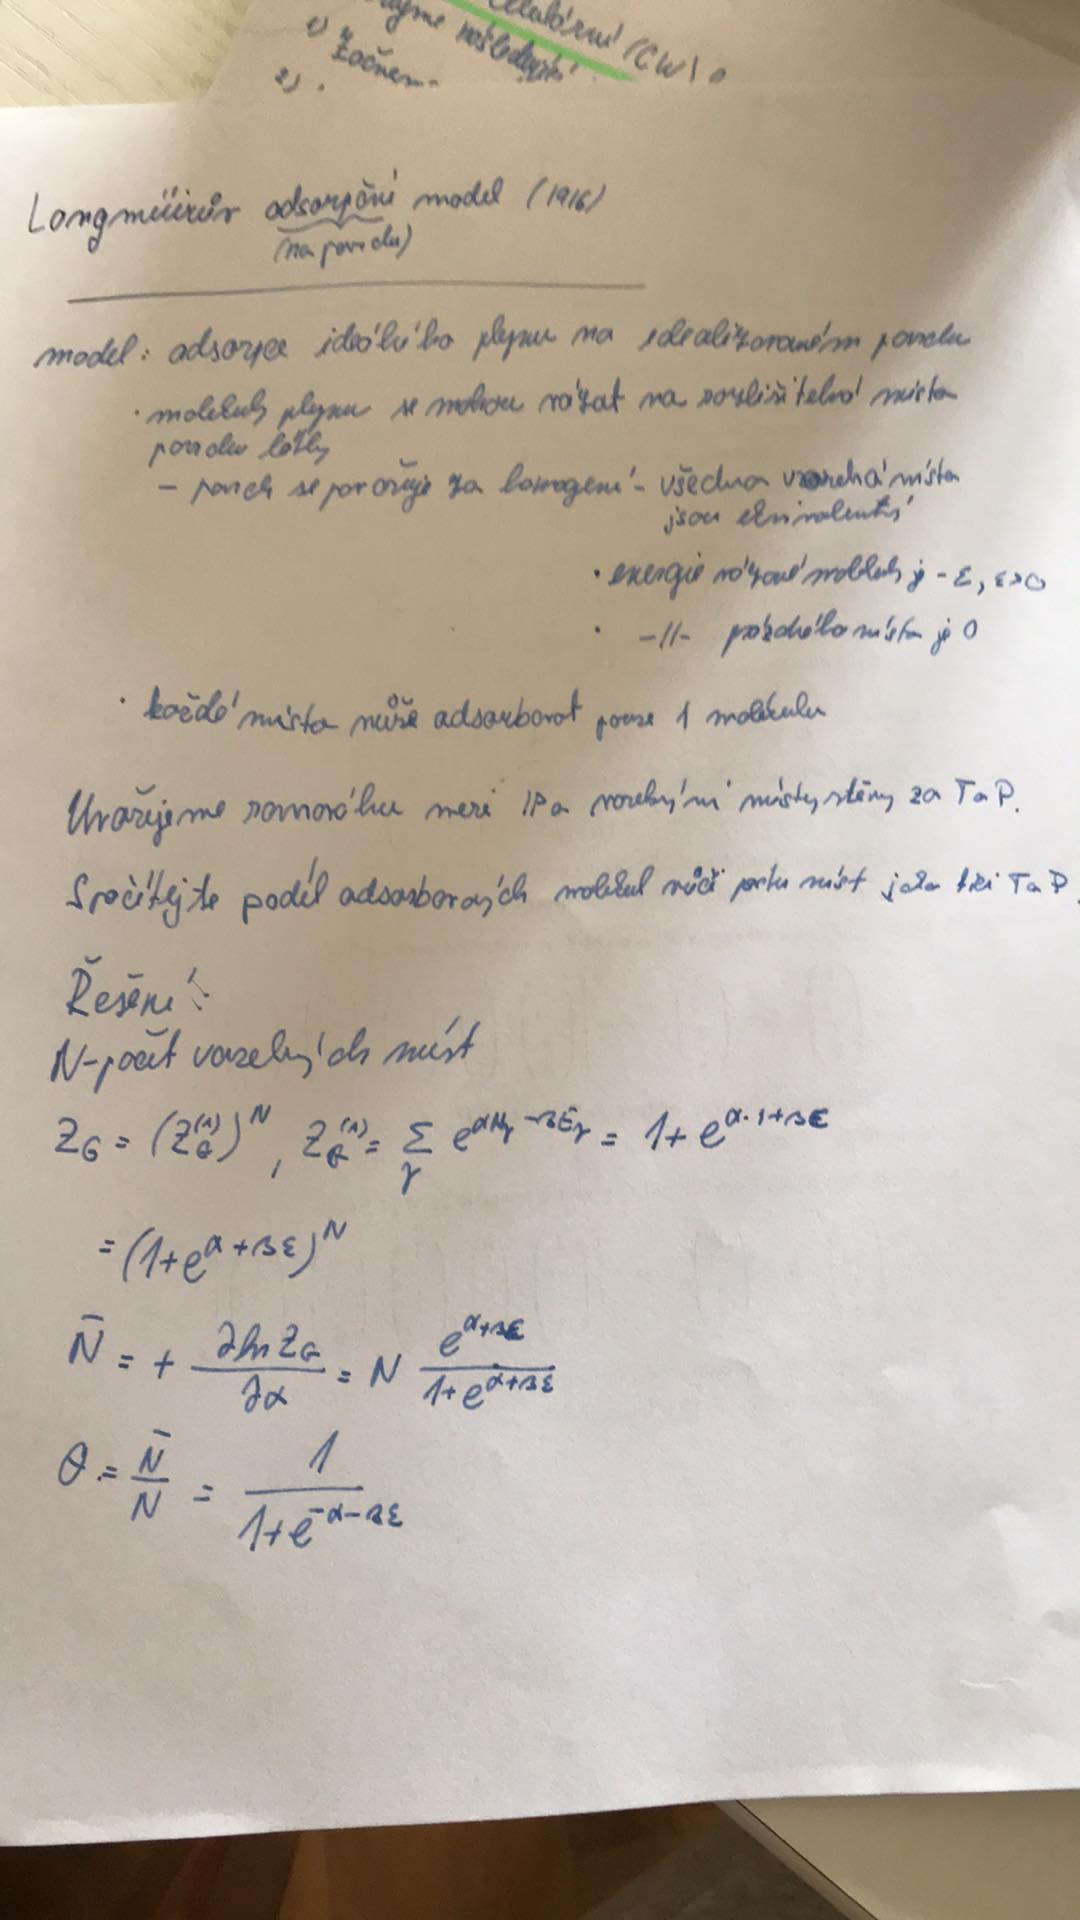 (CW)
1)
začnem
2)
Langmüirův adsorpční model (1916)
(na povrchu)
model: adsorpce ideálního plynu na idealizovaném povrchu
· molekuly plynu se mohou vázat na rozlišitelná místa
povrchu látky
– povrch se považuje za homogení – všechna vazebná místa
jsou ekvivalentní
· energie vázané molekuly je -ε, ε>0
· -//- prázdného místa je 0
· každé místo může adsorbovat pouze 1 molekulu
Uvažujeme rovnováhu mezi IP a vazebnými místy stěny za T a P.
Spočítejte podíl adsorbovaných molekul vůči počtu míst jako fci T a P.
Řešení:
N-počet vazebných míst
Z_G = (Z_G^(1))^N, Z_G^(1) = Σ_γ e^(αN_γ - βE_γ) = 1+e^(α·1+βε)
= (1+e^(α+βε))^N
N̄ = + ∂ln Z_G / ∂α = N e^(α+βε) / (1+e^(α+βε))
θ = N̄/N = 1 / (1+e^(-α-βε))